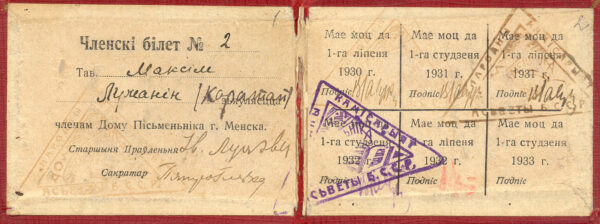 Членскі білет № 2
Тав. Максім
Лужанін (Каратай)
з'яўляецца
членам Дому Пісьменьніка г. Менска.
Старшыня Праўленьня
Сакратар
Мае моц да
1-га ліпеня
1930 г.
Подпіс
Мае моц да
1-га студзеня
1931 г.
Подпіс
Мае моц да
1-га ліпеня
1931 г.
Подпіс
Мае моц да
1-га студзеня
1932 г.
Подпіс
Мае моц да
1-га ліпеня
1932 г.
Подпіс
Мае моц да
1-га студзеня
1933 г.
Подпіс
КАНЦЕЛЯРЫЯ
АСЬВЕТЫ Б.С.С.Р.
АСЬВЕТЫ Б.С.С.Р.